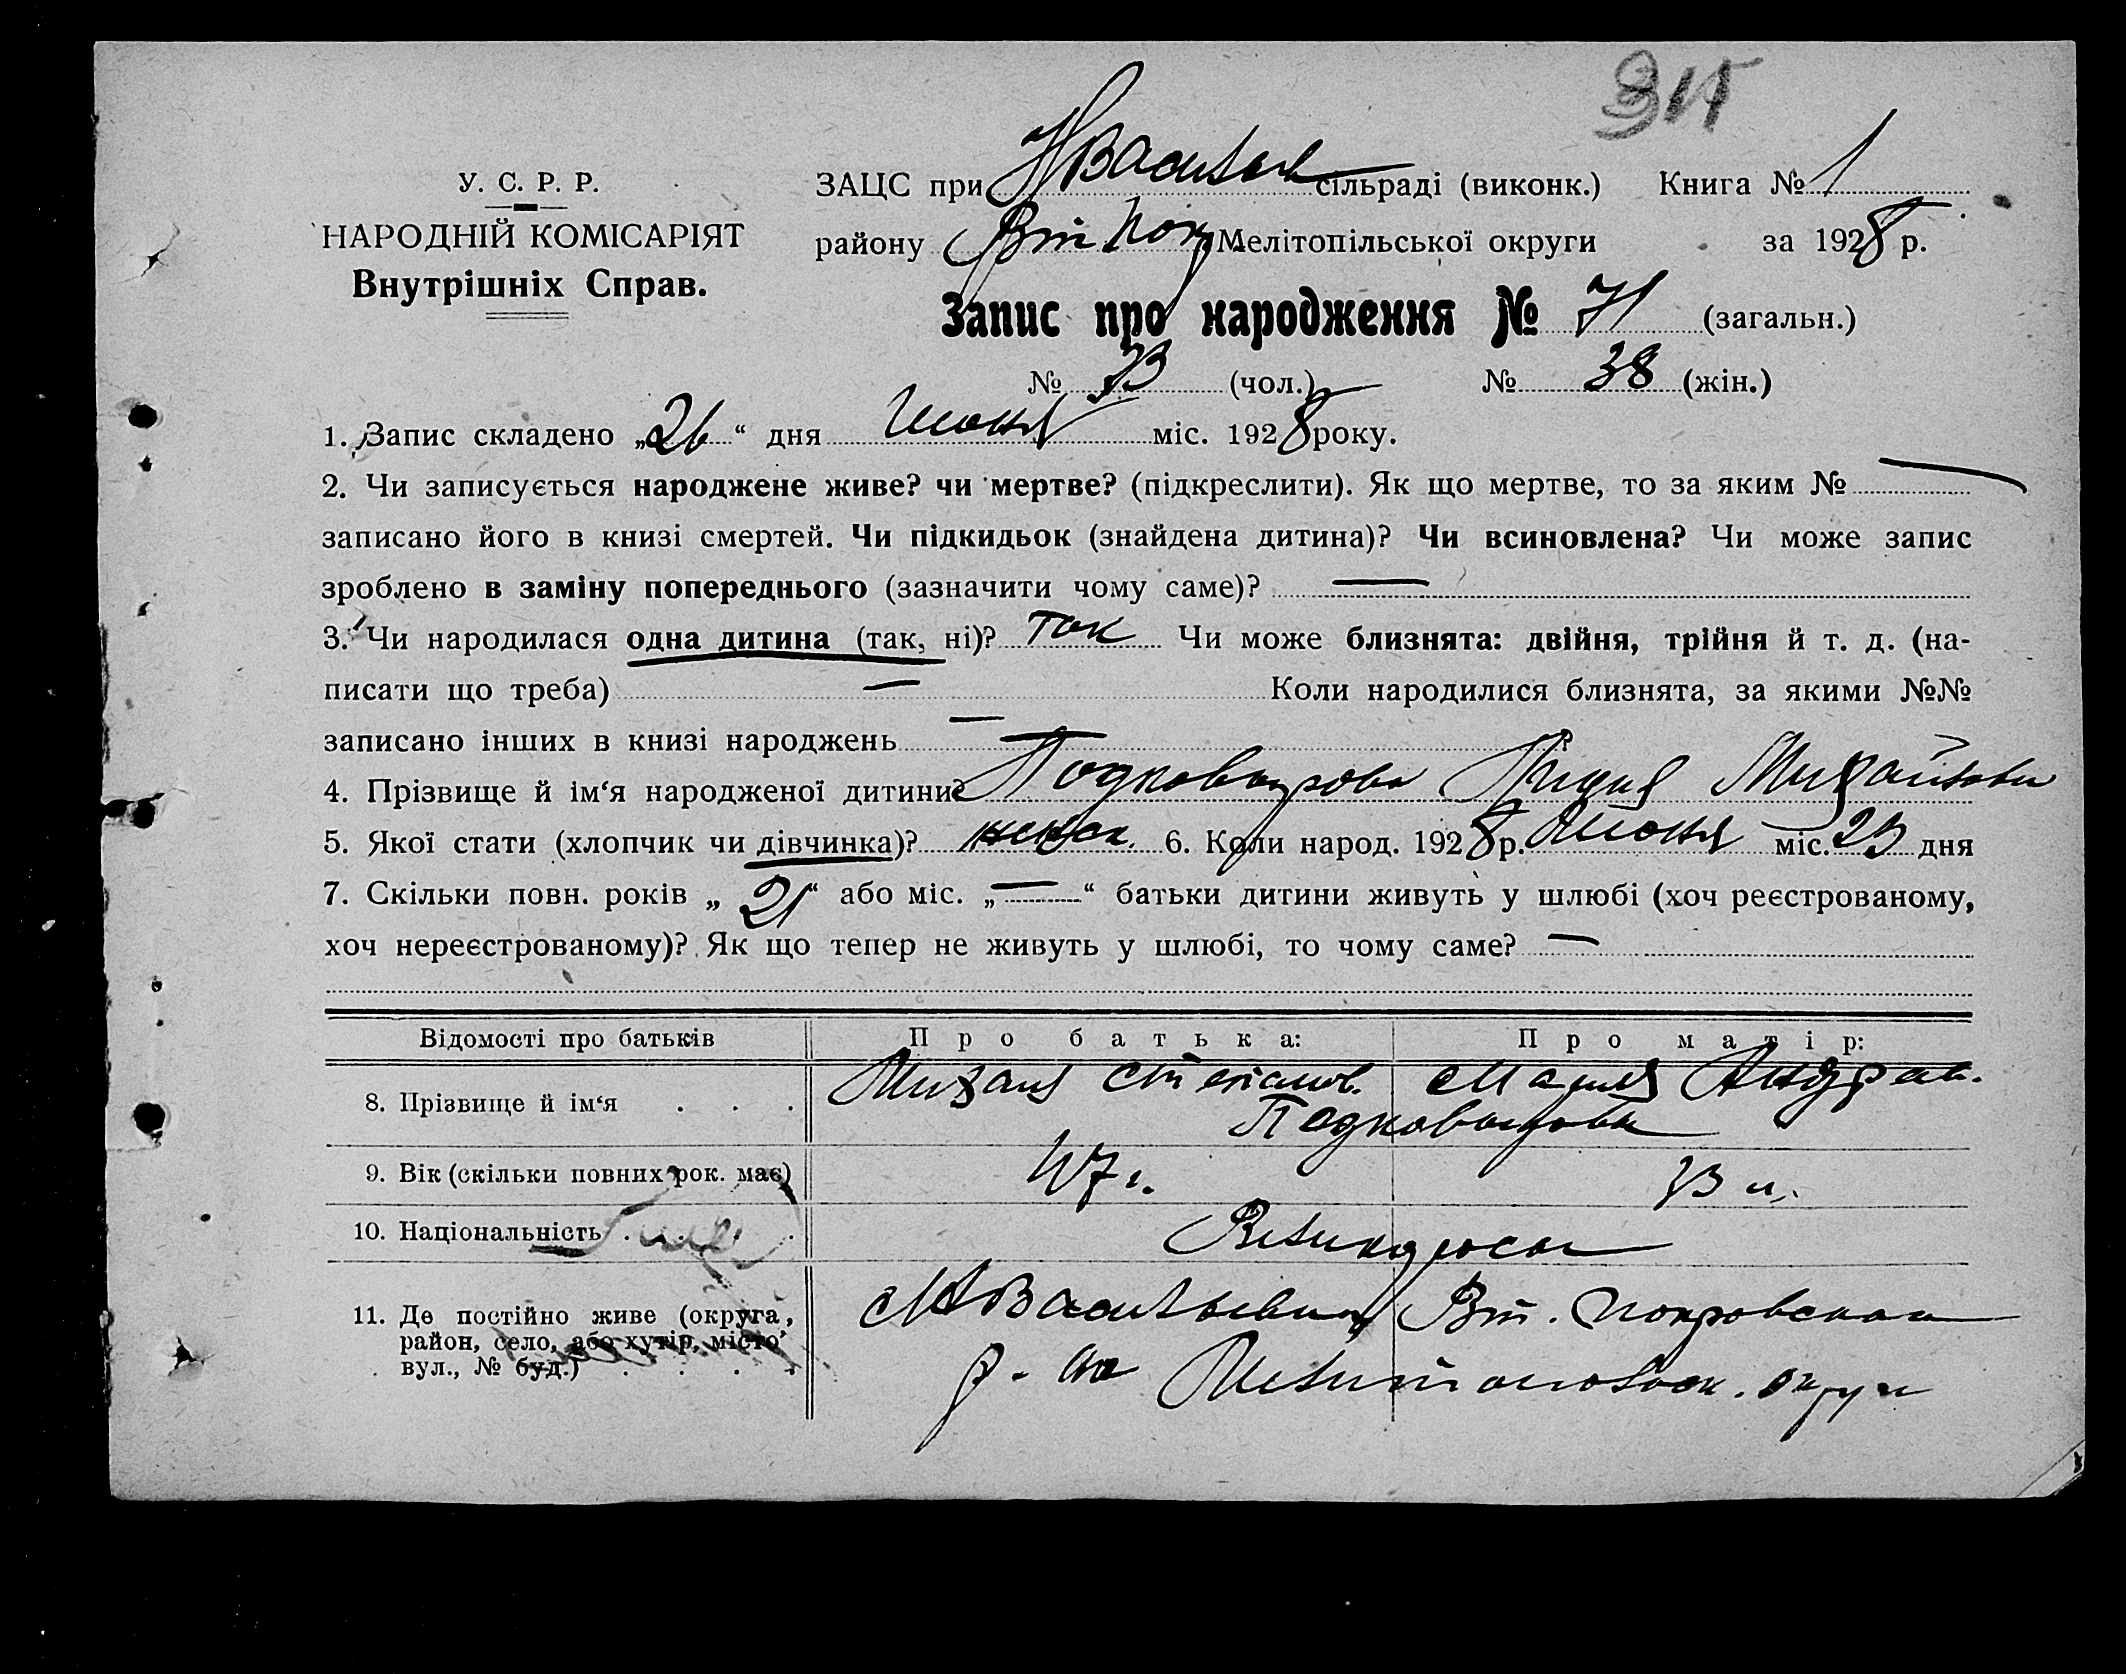 315
У. С. Р. Р.
НАРОДНІЙ КОМІСАРІЯТ
Внутрішніх Справ.
ЗАЦС при НВасильев сільраді (виконк.) Книга № 1
району Вт Покр Мелітопільської округи за 1928 р.
Запис про народження № 71 (загальн.)
№ 33 (чол.) № 38 (жін.)
1. Запис складено „26“ дня Июня міс. 1928 року.
2. Чи записується народжене живе? чи мертве? (підкреслити). Як що мертве, то за яким № —
записано його в книзі смертей. Чи підкидьок (знайдена дитина)? Чи всиновлена? Чи може запис
зроблено в заміну попереднього (зазначити чому саме)? —
3. Чи народилася одна дитина (так, ні)? так Чи може близнята: двійня, трійня й т. д. (на-
писати що треба) — Коли народилися близнята, за якими №№
записано інших в книзі народжень —
4. Прізвище й ім‘я народженої дитини? Подковырова Лидия Михайлов
5. Якої стати (хлопчик чи дівчинка)? женск. 6. Коли народ. 1928 р. Июня міс. 23 дня
7. Скільки повн. років „21“ або міс. „—“ батьки дитини живуть у шлюбі (хоч реєстрованому,
хоч нереєстрованому)? Як що тепер не живуть у шлюбі, то чому саме? —
Відомості про батьків Про батька: Про матір:
8. Прізвище й ім‘я . . . Михаил Степанов. Мария Андреев.
Подковырова
9. Вік (скільки повних рок. має) 47 г.
10. Національність . . . . Великороссы
11. Де постійно живе (округа, НВасильевка Вт. Покровского
район, село, або хутір, місто, р-на Мелитопольск. округи
вул., № буд.) . . . .